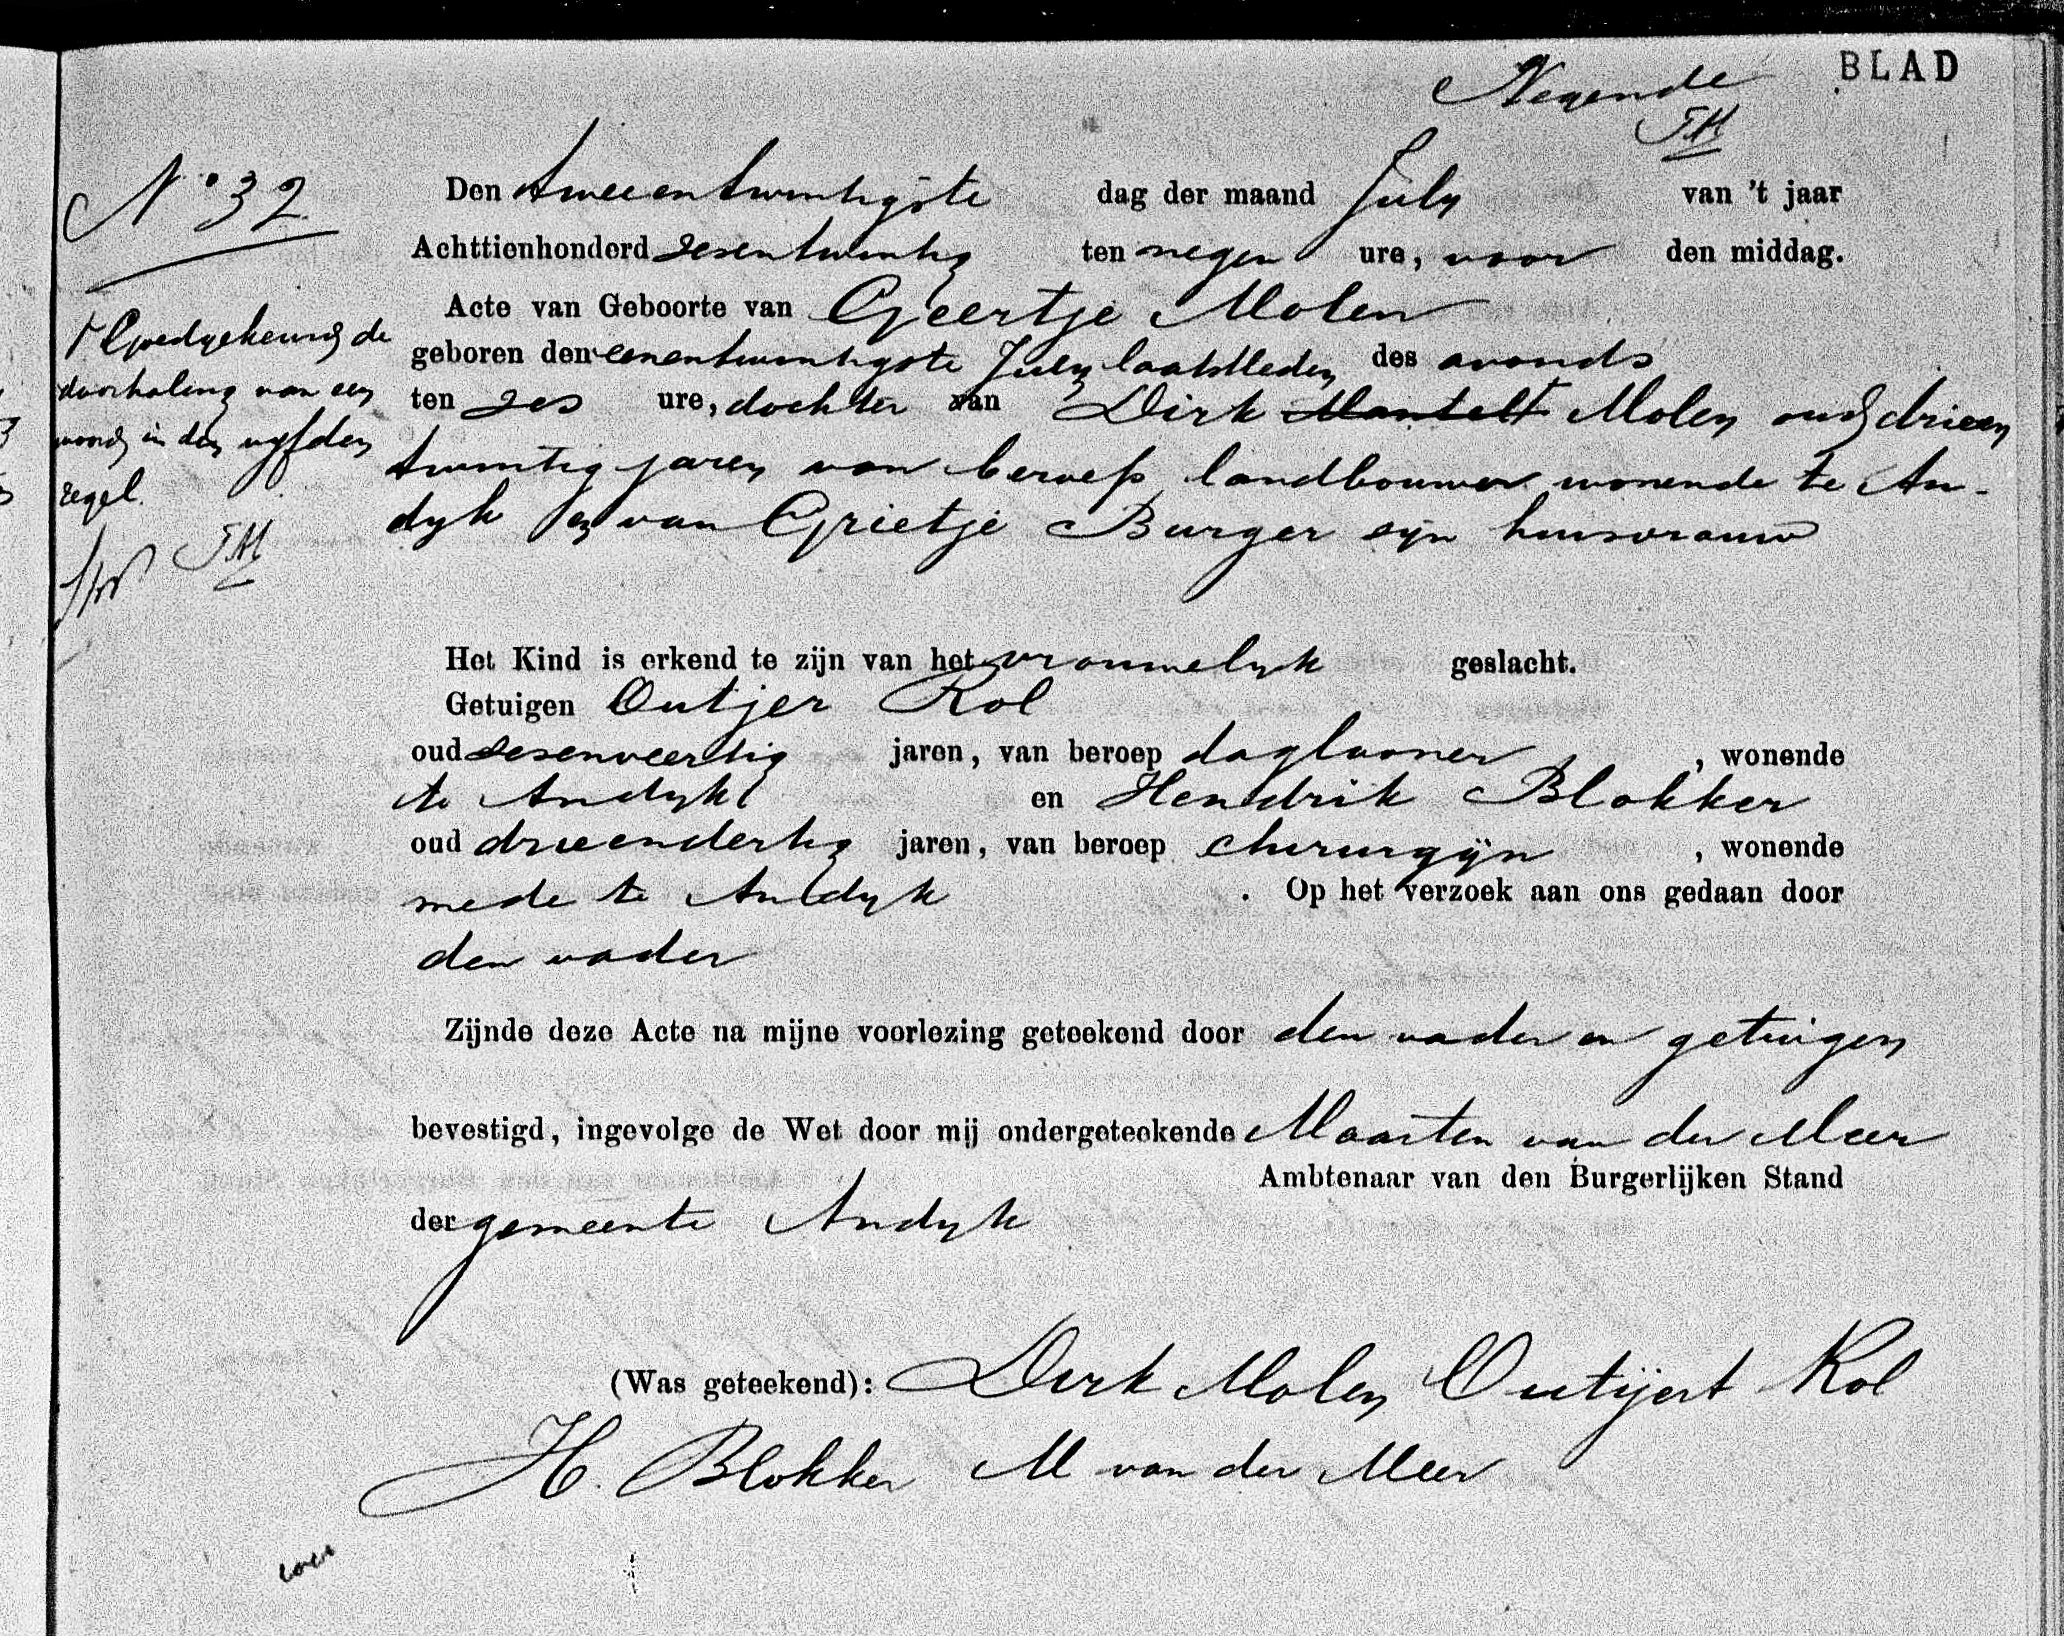 Negende BLAD
N° 32
Den tweeentwintigste dag der maand July van 't jaar
Achttienhonderd zesentwintig ten negen ure, voor den middag.
Acte van Geboorte van Geertje Molen
geboren den eenentwintigste July laatstleden des avonds
ten zes ure, dochter van Dirk Mantelt Molen oud drieen
twintig jaren van beroep landbouwer wonende te An-
dyk en van Grietje Burger zyn huisvrouw
Goedgekeurd de
doorhaling van een
woord in den vyfden
regel.
Het Kind is erkend te zijn van het vrouwelyk geslacht.
Getuigen Outjer Kol
oud zesenveertig jaren, van beroep daglooner, wonende
te Andyk en Hendrik Blokker
oud drieendertig jaren, van beroep chirurgyn, wonende
mede te Andyk. Op het verzoek aan ons gedaan door
den vader
Zijnde deze Acte na mijne voorlezing geteekend door den vader en getuigen
bevestigd, ingevolge de Wet door mij ondergeteekende Maarten van der Meer
Ambtenaar van den Burgerlijken Stand
der gemeente Andyk
(Was geteekend): Dirk Molen Outijert Kol
H. Blokker M van der Meer